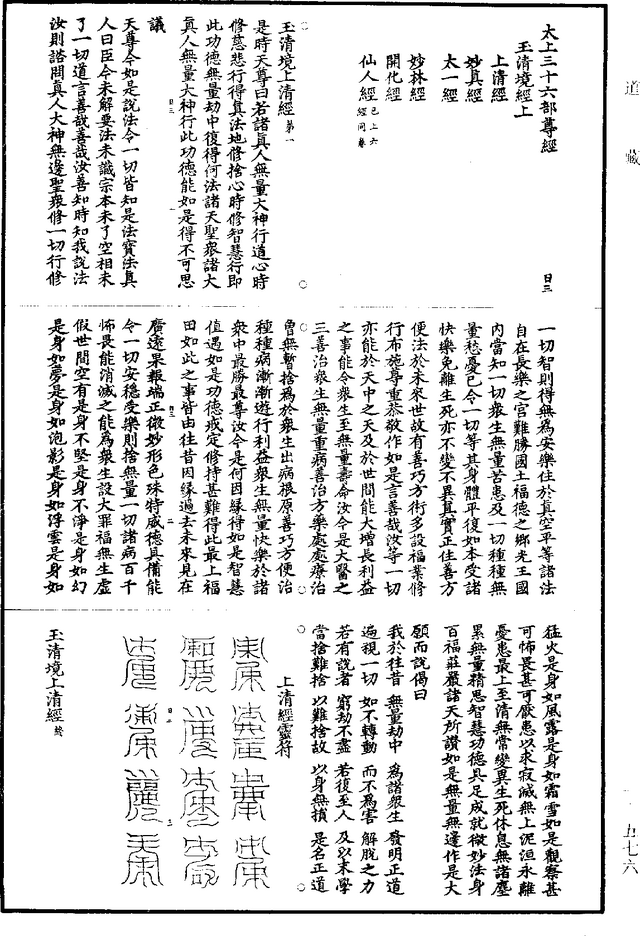 道藏
太上三十六部尊經
日三
玉清境經上
上清經
妙真經
太一經
妙林經
開化經
仙人經 已上六經同卷
玉清境上清經 第一
是時天尊曰若諸真人無量大神行道心時
修慈悲行得真法地修捨心時修智慧行即
此功德無量劫中復得何法諸天聖眾諸大
真人無量大神行此功德能如是得不可思
議
天尊今如是說法令一切皆知是法寶法真
人曰臣今未解要法未識宗本未了空相未
了一切道言善哉善哉汝善知時知我說法
汝則諮問真人大神無邊聖眾修一切行修
一切智則得無為安樂住於真空平等諸法
自在長樂之宮難勝國土福德之鄉先王國
內當知一切眾生無量苦患及一切種種無
量愁憂已令一切等其身體平復如本受諸
快樂免離生死亦不變不異真實正住善方
便法於未來世故有善巧方術多設福業修
行布施尊重恭敬作如是言善哉汝等一切
亦能於天中之天及於世間能大增長利益
之事能令眾生至無量壽命汝令是大醫之
三善治眾生無量重病善治方藥處處療治
曾無暫捨為於眾生出病根原善巧方便治
種種病漸漸遊行利益眾生無量快樂於諸
眾中最勝最尊汝今是何因緣得如是智慧
值遇如是功德戒定修持甚難得此最上福
田如此之事皆由往昔因緣過去未來見在
廣遠果報端正微妙形色殊特威德具備能
令一切安穩受樂則捨無量一切諸病百千
怖畏能消滅之能為眾生設大罪福無生虛
假世間空有是身不堅是身不淨是身如幻
是身如夢是身如泡影是身如浮雲是身如
猛火是身如風露是身如霜雪如是觀察甚
可怖畏甚可厭患以求寂滅無上泥洹永離
憂患最上至清無常變異生死休息無諸塵
累無量精思智慧功德具足成就微妙法身
百福莊嚴諸天所讚如是無量無邊作是大
願而說偈曰
我於往昔 無量劫中 為諸眾生 發明正道
遍視一切 如不轉動 而不為害 解脫之力
若有說者 窮劫不盡 若復至人 及以末學
當捨難捨 以難捨故 以身無損 是名正道
上清經靈符
玉清境上清經 終
一·五七六